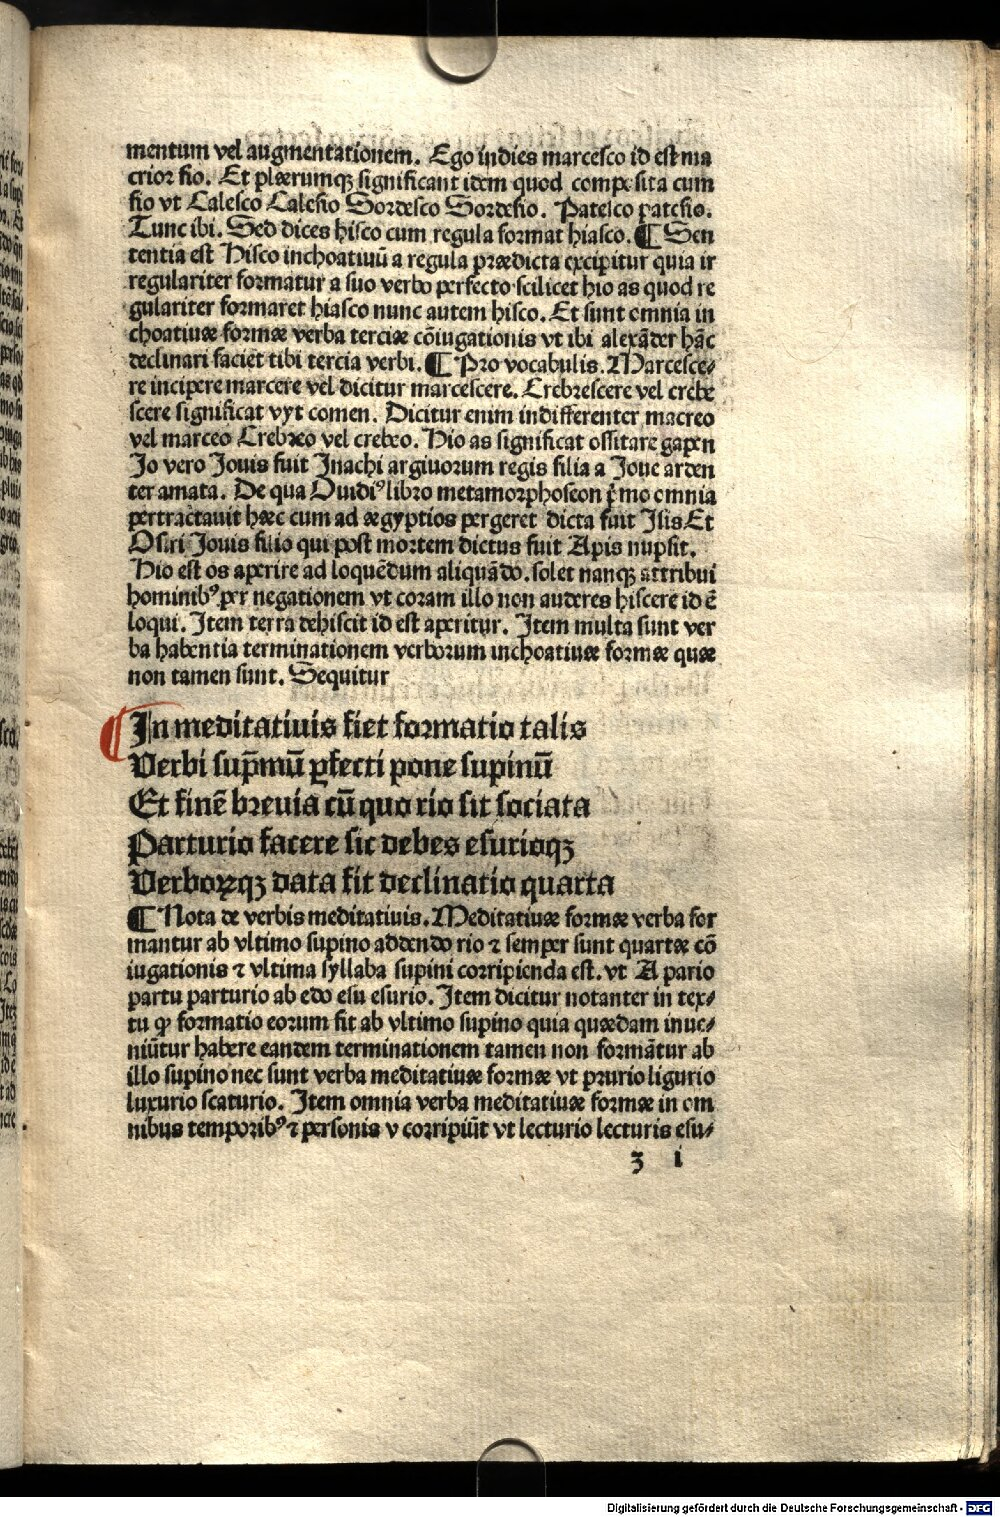 mentum vel augmentationem. Ego indies marcesco id est ma
crior fio. Et plærumqꝫ significant idem quod composita cum
fio vt Calesco Calefio Sordesco Sordefio. Patesco patefio.
Tunc ibi. Sed dices hisco cum regula format hiasco. ¶ Sen
tentia est Hisco inchoatiuū a regula prædicta excipitur quia ir
regulariter formatur a suo verbo perfecto scilicet hio as quod re
gulariter formaret hiasco nunc autem hisco. Et sunt omnia in
choatiuæ formæ verba terciæ cōiugationis vt ibi alexāder hāc
declinari faciēt tibi tercia verbi. ¶ Pro vocabulis. Marcesce⸗
re incipere marcere vel dicitur marcescere. Crebrescere vel crebe
scere significat vyt comen. Dicitur enim indifferenter macreo
vel marceo Crebreo vel crebeo. Hio as significat ossitare gapen
Jo vero Jouis fuit Jnachi argiuorum regis filia a Joue arden
ter amata. De qua Ouidiꝰ libro metamorphoseon p̄mo omnia
pertractauit hæc cum ad ægyptios pergeret dicta fuit Jsis Et
Osiri Jouis filio qui post mortem dictus fuit Apis nupsit.
Hio est os aperire ad loquēdum aliquādo. solet nanqꝫ attribui
hominibꝰ per negationem vt coram illo non auderes hiscere id ē
loqui. Jtem terra dehiscit id est aperitur. Jtem multa sunt ver
ba habentia terminationem verborum inchoatiuæ formæ quæ
non tamen sunt. Sequitur
Jn meditatiuis fiet formatio talis
Verbi sup̄mū ꝑfecti pone supinū
Et finē breuia cū quo rio sit sociata
Parturio facere sic debes esurioqꝫ
Verboꝝqꝫ data fit declinatio quarta
¶ Nota de verbis meditatiuis. Meditatiuæ formæ verba for
mantur ab vltimo supino addendo rio ⁊ semper sunt quartæ cō
iugationis ⁊ vltima syllaba supini corripienda est. vt A pario
partu parturio ab edo esu esurio. Jtem dicitur notanter in tex⸗
tu ꝙ formatio eorum fit ab vltimo supino quia quædam inue⸗
niūtur habere eandem terminationem tamen non formātur ab
illo supino nec sunt verba meditatiuæ formæ vt prurio ligurio
luxurio scaturio. Jtem omnia verba meditatiuæ formæ in om
nibus temporibꝰ ⁊ personis v corripiūt vt lecturio lecturis esu⸗
z i
Digitalisierung gefördert durch die Deutsche Forschungsgemeinschaft - DFG